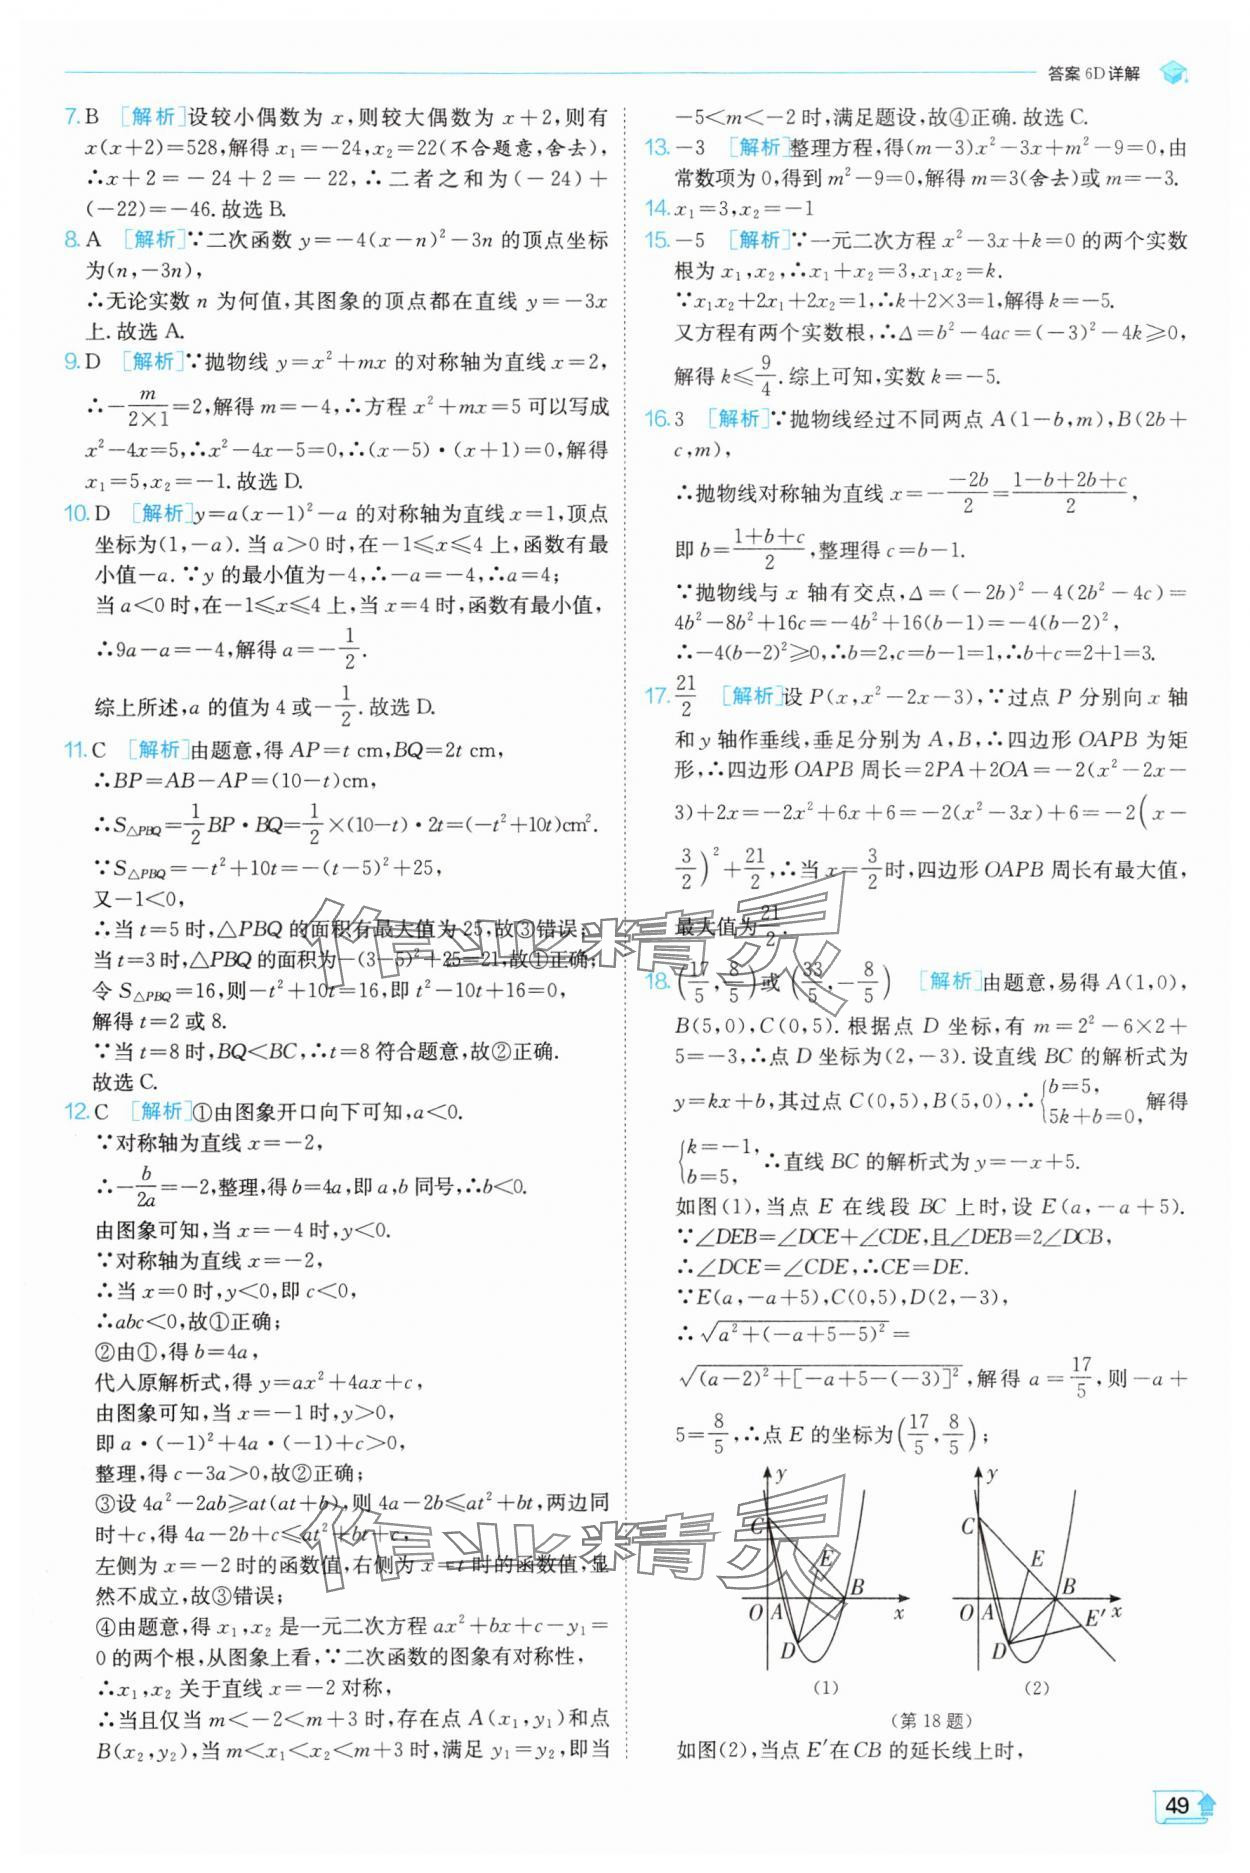 答案 6D详解
7. B [解析]设较小偶数为 x,则较大偶数为 x+2,则有
x(x+2)=528,解得 x₁=-24,x₂=22(不合题意,舍去),
∴x+2=-24+2=-22,∴二者之和为(-24)+
(-22)=-46.故选 B.
8. A [解析]∵二次函数 y=-4(x-n)²-3n 的顶点坐标
为(n,-3n),
∴无论实数 n 为何值,其图象的顶点都在直线 y=-3x
上.故选 A.
9. D [解析]∵抛物线 y=x²+mx 的对称轴为直线 x=2,
∴-m/(2×1)=2,解得 m=-4,∴方程 x²+mx=5 可以写成
x²-4x=5,∴x²-4x-5=0,∴(x-5)·(x+1)=0,解得
x₁=5,x₂=-1.故选 D.
10. D [解析]y=a(x-1)²-a 的对称轴为直线 x=1,顶点
坐标为(1,-a).当 a>0 时,在-1≤x≤4 上,函数有最
小值-a.∵y 的最小值为-4,∴-a=-4,∴a=4;
当 a<0 时,在-1≤x≤4 上,当 x=4 时,函数有最小值,
∴9a-a=-4,解得 a=-1/2.
综上所述,a 的值为 4 或-1/2.故选 D.
11. C [解析]由题意,得 AP=t cm,BQ=2t cm,
∴BP=AB-AP=(10-t)cm,
∴S△PBQ=1/2 BP·BQ=1/2×(10-t)·2t=(-t²+10t)cm².
∵S△PBQ=-t²+10t=-(t-5)²+25,
又-1<0,
∴当 t=5 时,△PBQ 的面积有最大值为 25,故③错误;
当 t=3 时,△PBQ 的面积为-(3-5)²+25=21,故①正确;
令 S△PBQ=16,则-t²+10t=16,即 t²-10t+16=0,
解得 t=2 或 8.
∵当 t=8 时,BQ<BC,∴t=8 符合题意,故②正确.
故选 C.
12. C [解析]①由图象开口向下可知,a<0.
∵对称轴为直线 x=-2,
∴-b/2a=-2,整理,得 b=4a,即 a,b 同号,∴b<0.
由图象可知,当 x=-4 时,y<0.
∵对称轴为直线 x=-2,
∴当 x=0 时,y<0,即 c<0,
∴abc<0,故①正确;
②由①,得 b=4a,
代入原解析式,得 y=ax²+4ax+c,
由图象可知,当 x=-1 时,y>0,
即 a·(-1)²+4a·(-1)+c>0,
整理,得 c-3a>0,故②正确;
③设 4a²-2ab≥at(at+b),则 4a-2b≤at²+bt,两边同
时+c,得 4a-2b+c≤at²+bt+c,
左侧为 x=-2 时的函数值,右侧为 x=t 时的函数值,显
然不成立,故③错误;
④由题意,得 x₁,x₂ 是一元二次方程 ax²+bx+c-y₁=
0 的两个根,从图象上看,∵二次函数的图象有对称性,
∴x₁,x₂ 关于直线 x=-2 对称,
∴当且仅当 m<-2<m+3 时,存在点 A(x₁,y₁)和点
B(x₂,y₂),当 m<x₁<x₂<m+3 时,满足 y₁=y₂,即当
-5<m<-2 时,满足题设,故④正确.故选 C.
13. -3 [解析]整理方程,得(m-3)x²-3x+m²-9=0,由
常数项为 0,得到 m²-9=0,解得 m=3(舍去)或 m=-3.
14. x₁=3,x₂=-1
15. -5 [解析]∵一元二次方程 x²-3x+k=0 的两个实数
根为 x₁,x₂,∴x₁+x₂=3,x₁x₂=k.
∵x₁x₂+2x₁+2x₂=1,∴k+2×3=1,解得 k=-5.
又方程有两个实数根,∴Δ=b²-4ac=(-3)²-4k≥0,
解得 k≤9/4.综上可知,实数 k=-5.
16. 3 [解析]∵抛物线经过不同两点 A(1-b,m),B(2b+
c,m),
∴抛物线对称轴为直线 x=-(-2b)/2=(1-b+2b+c)/2,
即 b=(1+b+c)/2,整理得 c=b-1.
∵抛物线与 x 轴有交点,Δ=(-2b)²-4(2b²-4c)=
4b²-8b²+16c=-4b²+16(b-1)=-4(b-2)²,
∴-4(b-2)²≥0,∴b=2,c=b-1=1,∴b+c=2+1=3.
17. 21/2 [解析]设 P(x,x²-2x-3),∵过点 P 分别向 x 轴
和 y 轴作垂线,垂足分别为 A,B,∴四边形 OAPB 为矩
形,∴四边形 OAPB 周长=2PA+2OA=-2(x²-2x-
3)+2x=-2x²+6x+6=-2(x²-3x)+6=-2(x-
3/2)²+21/2,∴当 x=3/2时,四边形 OAPB 周长有最大值,
最大值为21/2.
18. (17/5,8/5)或(33/5,-8/5) [解析]由题意,易得 A(1,0),
B(5,0),C(0,5).根据点 D 坐标,有 m=2²-6×2+
5=-3,∴点 D 坐标为(2,-3).设直线 BC 的解析式为
y=kx+b,其过点 C(0,5),B(5,0),∴{b=5, 5k+b=0,解得
{k=-1, b=5, ∴直线 BC 的解析式为 y=-x+5.
如图(1),当点 E 在线段 BC 上时,设 E(a,-a+5).
∵∠DEB=∠DCE+∠CDE,且∠DEB=2∠DCB,
∴∠DCE=∠CDE,∴CE=DE.
∵E(a,-a+5),C(0,5),D(2,-3),
∴√(a²+(-a+5-5)²)=
√((a-2)²+[-a+5-(-3)]²),解得 a=17/5,则-a+
5=8/5,∴点 E 的坐标为(17/5,8/5);
y C E O A B x D
(1)
y C E O A B E′ x D
(2)
(第 18 题)
如图(2),当点 E′在 CB 的延长线上时,
49
作业精灵
作业精灵